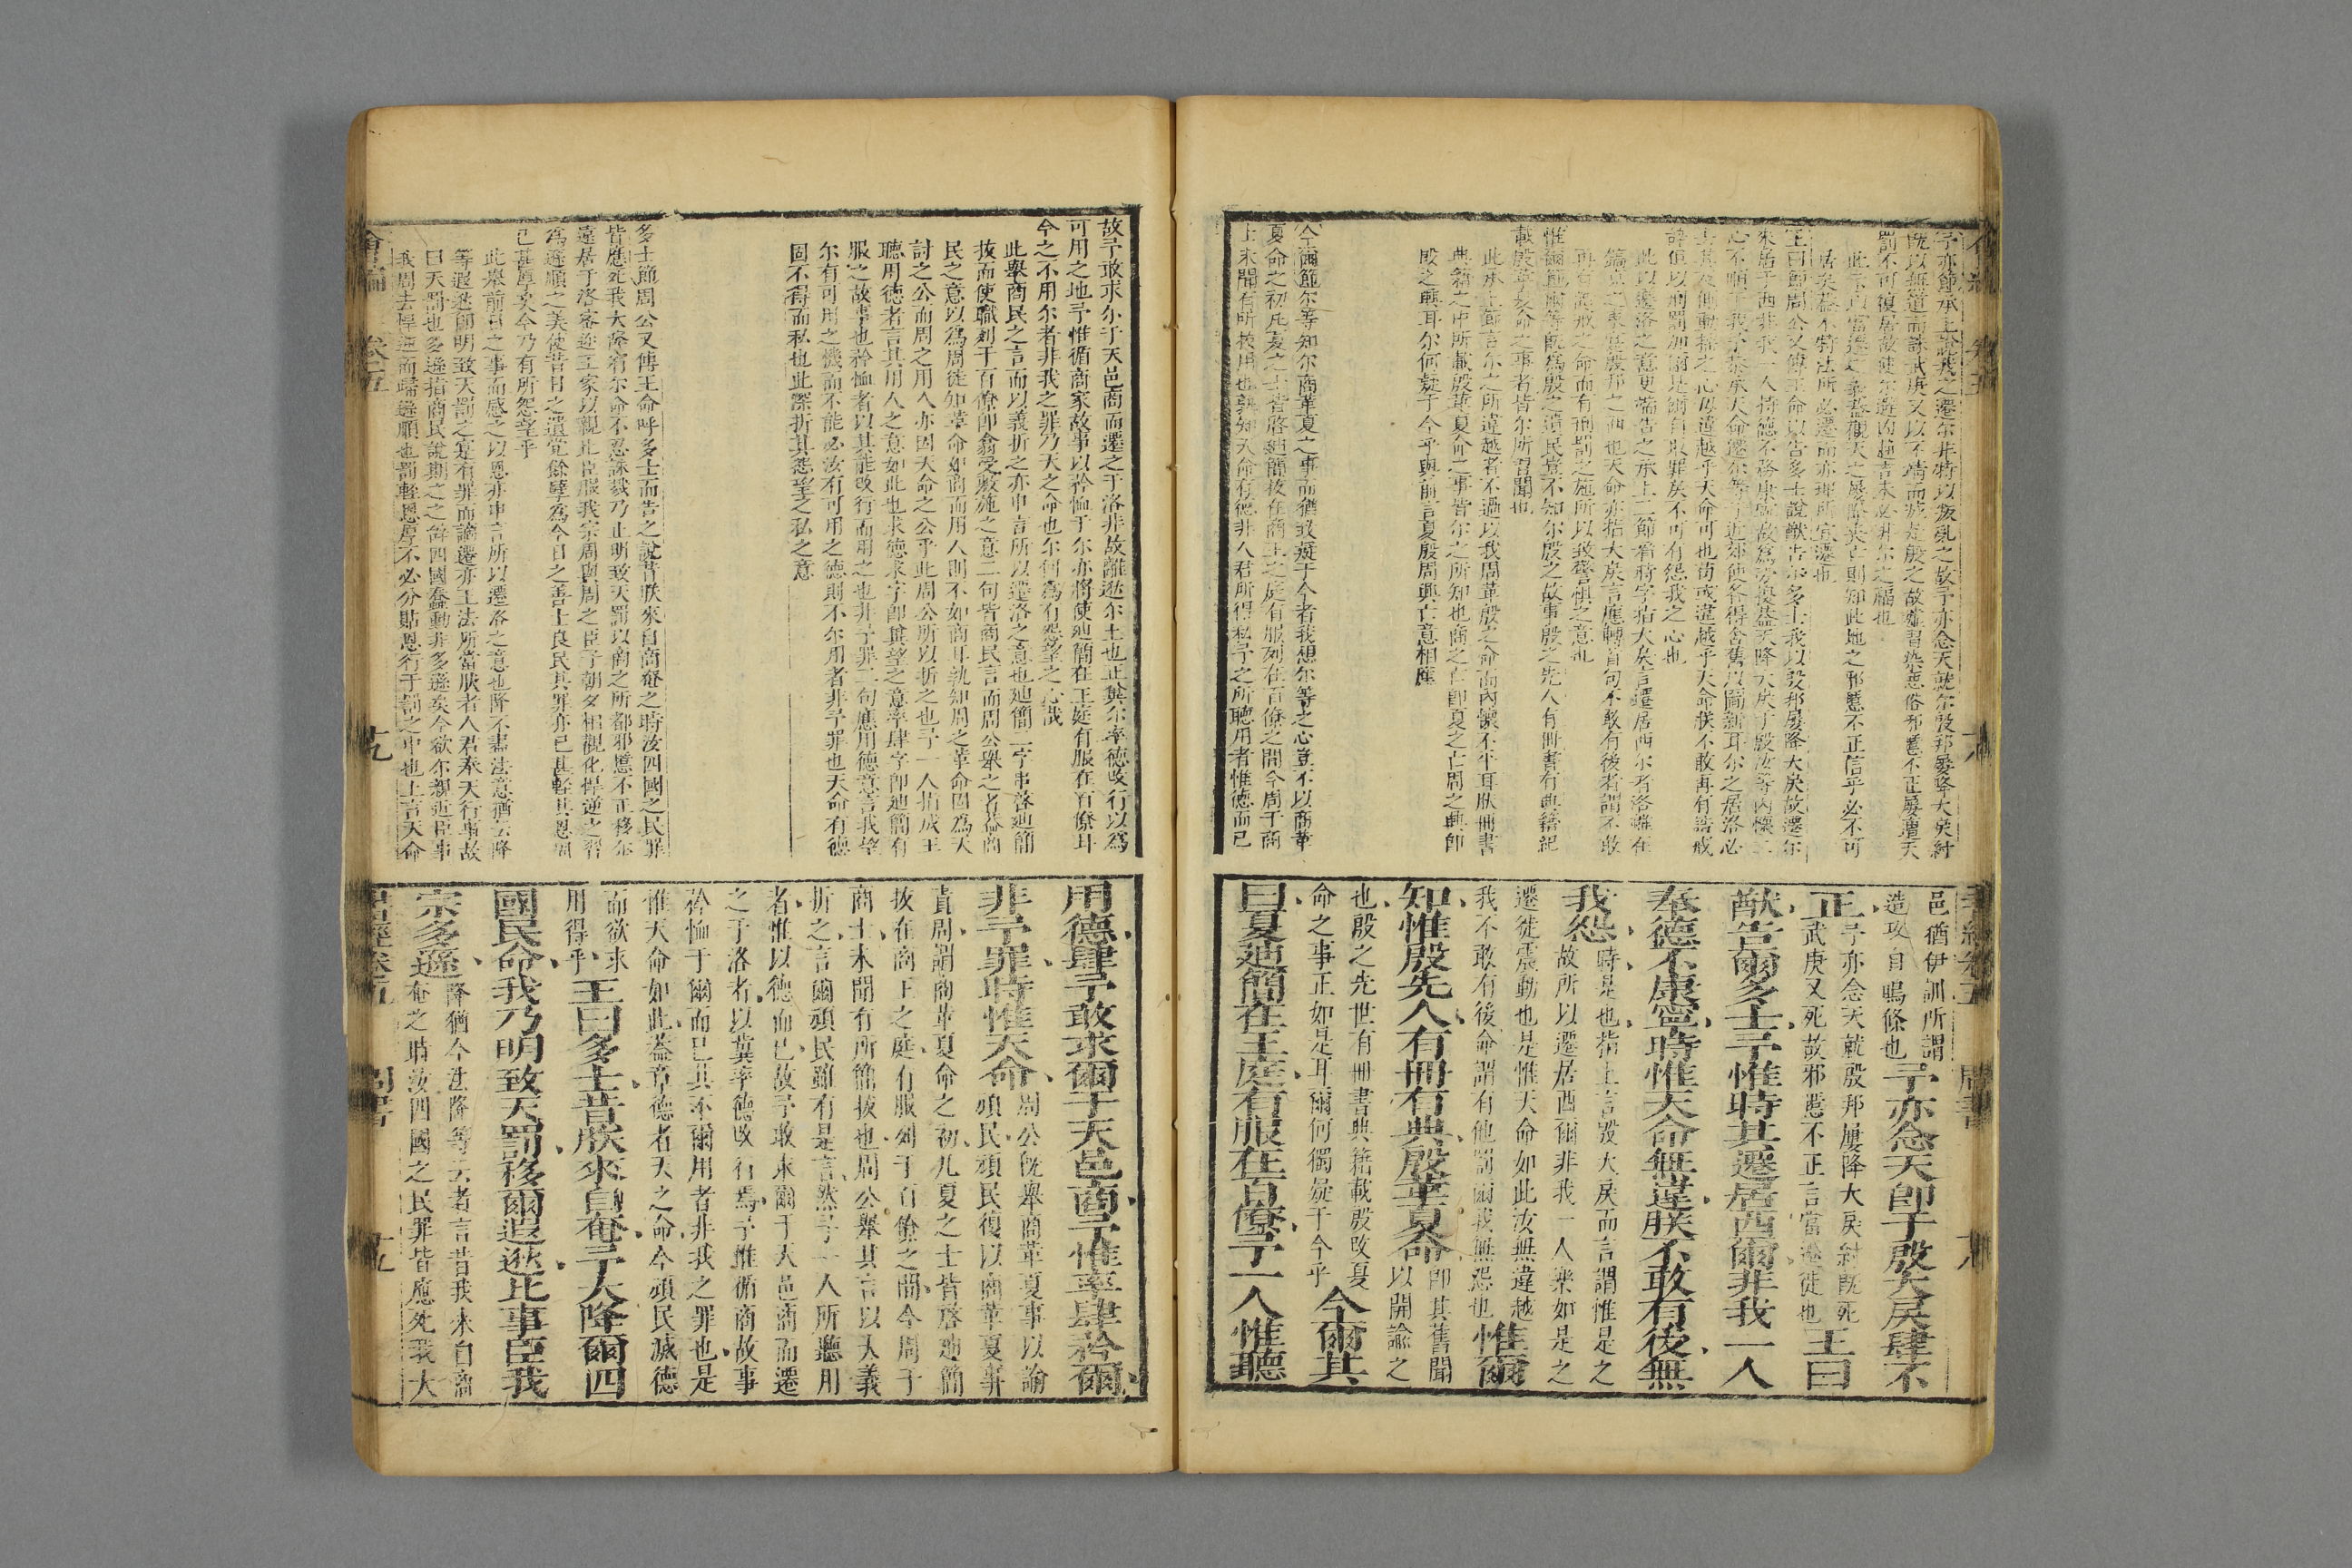 予亦節承上恭義之遷尔非特以叛亂之故予亦念天就尔殷邦屢降大戾紂
既以無道而誅武庚又以不靖而滅是殷之故墟習染惡俗邪慝不正屢遭天
罰不可復居故使尔遷凶趨吉未必非尔之福也
此示以當遷之義蓋觀天之屢降災亡則知此地之邪慝不正信乎必不可
居矣蓋不特法所必遷而亦理所宜遷也
王曰節周公又傳王命以告多士說猷告尔多士我以殷邦屢降大戾故遷尔
來居于西非我一人持德不務康寧故為勞擾蓋天降大戾于殷汝等內懷二
心不順于我予恭承天命遷尔等于近郊使各得舍舊以圖新耳尔之居洛必
動搖之心毋違越乎天命可也苟或違越乎天命朕不敢再有誥戒
以刑罰加爾是爾自取罪戾不可有怨我之心也
此以遷洛之意更端告之承上二節看時字指大戾言遷居西尔者洛雖在
殷邦之西也天命亦指大戾言應轉首句不敢有後者謂不敢
再有告戒之命而有刑罰之施所以致警惧之意也
惟爾節爾等既為殷之遺民豈不知尔殷之故事殷之先人有冊書有典籍紀
載殷革夏命之事者皆尔所習聞也
此承上節言尔之所違越者不過以我周革殷之命而內懷不平耳肰冊書
典籍之中所載殷革夏命之事皆尔之所知也商之亡即夏之亡周之興即
殷之興耳尔何疑于今乎與前言夏殷周興亡意相應
今爾節尔等知尔商革夏之事而猶致疑于今者我想尔等之心豈不以商革
夏命之初凡夏之士皆啓廸簡拔在商王之庭有服列在百僚之間今周于商
士未聞有所拔用也孰知天命有德非人君所得私予之所聽用者惟德而已
邑猶伊訓所謂
造攻自鳴條也予亦念天即于殷大戾肆不
正予亦念天就殷邦屢降大戾紂既死
武庚又死故邪慝不正言當遷徙也王曰
猷告爾多士予惟時其遷居西爾非我一人
奉德不康寧時惟天命無違朕不敢有後無
我怨時是也指上言殷大戾而言謂惟是之
故所以遷居西爾非我一人樂如是之
遷徙震動也是惟天命如此汝無違越
我不敢有後命謂有他罰爾我無怨也惟爾
知惟殷先人有冊有典殷革夏命即其舊聞
以開諭之
也殷之先世有冊書典籍載殷改夏
命之事正如是耳爾何獨疑于今乎今爾其
曰夏廸簡在王庭有服在百僚予一人惟聽
故予敢求尔于天邑商而遷之于洛非故離逖尔土也正冀尔率德改行以為
可用之地予惟循商家故事以矜恤于尔亦將使廸簡在王庭有服在百僚耳
今之不用尔者非我之罪乃天之命也尔何為有怨望之心哉
此舉商民之言而以義折之亦申言所以遷洛之意也廸簡二字串啓廸簡
拔而使職列于百僚即翕受敷施之意二句皆商民言而周公舉之者蓋商
民之意以為周徒知革命如商而用人則不如商耳孰知周之革命固為天
討之公而周之用人亦因天命之公乎此周公所以折之也予一人指成王
聽用德者言其用人之意如此也求德求字即冀望之意率肆字即廸簡有
服之故事也矜恤者以其能改行而用之也非予罪二句應用德意言我望
尔有可用之機而不能必汝有可用之德則不尔用者非予罪也天命有德
固不得而私也此深折其怨望之私之意
多士節周公又傳王命呼多士而告之說昔朕來自商奄之時汝四國之民罪
皆應死我大降宥尔命不忍誅戮乃止明致天罰以商之所都邪慝不正移尔
遠居于洛密邇王家以親比臣服我宗周與周之臣子朝夕相觀化悍逆之習
為遜順之美使昔日之遺党餘孽為今日之善士良民其罪亦已甚輕其恩固
已甚厚矣今乃有所怨望乎
此舉前日之事而感之以恩亦申言所以遷洛之意也降不盡法意猶云降
等遐逖節明致天罰之寔有罪而論遷亦王法所當肰者人君奉天行事故
曰天罰也多遜指商民說期之之辭四國蠢動非多遜矣今欲尔親近臣事
我周去悍逆而歸遜順也罰輕恩厚不必分貼恩行于罰之中也上言天命
用德肆予敢求爾于天邑商予惟率肆矜爾
非予罪時惟天命周公既舉商革夏事以諭
頑民頑民復以商革夏事
責周謂商革夏命之初凡夏之士皆啓廸簡
拔在商王之庭有服列于百僚之間今周于
商士未聞有所簡拔也周公舉其言以大義
折之言爾頑民雖有是言然予一人所聽用
者惟以德而已故予敢求爾于天邑商而遷
之于洛者以冀率德改行焉予惟循商故事
矜恤于爾而已其不爾用者非我之罪也是
惟天命如此蓋章德者天之命今頑民滅德
而欲求
用得乎王曰多士昔朕來自奄予大降爾四
國民命我乃明致天罰移爾遐逖比事臣我
宗多遜降猶今法降等云者言昔我來自商
奄之時汝四國之民罪皆應死我大